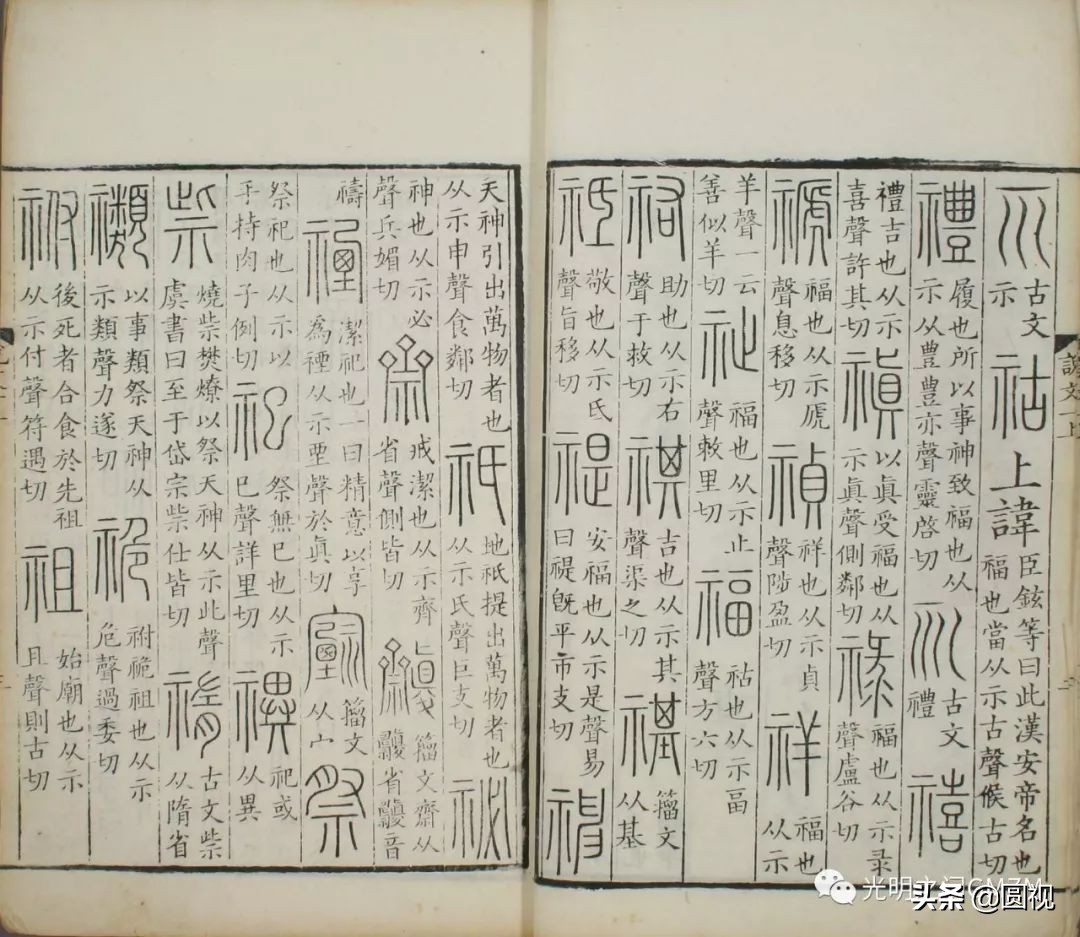 古文示 祜 上諱 臣鉉等曰此漢安帝名也福也當从示古聲候古切
禮 履也所以事神致福也从示从豊豊亦聲靈啓切 古文禮 禧
禮吉也从示喜聲許其切 禛 以眞受福也从示眞聲側鄰切 祿 福也从示彔聲盧谷切
禠 福也从示虒聲息移切 禎 祥也从示貞聲陟盈切 祥 福也从示
羊聲一云善似羊切 祉 福也从示止聲敕里切 福 祜也从示畐聲方六切
祐 助也从示右聲于救切 祺 吉也从示其聲渠之切 禥 籀文从基
祗 敬也从示氐聲旨移切 禔 安福也从示是聲易曰禔旣平市支切 神
天神引出萬物者也从示申聲食鄰切 祇 地祇提出萬物者也从示氏聲巨支切 祕
神也从示必聲兵媚切 齋 戒潔也从示齊省聲側皆切 籀文齋从省音
禱 禋 潔祀也一曰精意以享為禋从示垔聲於真切 籀文从宀 祭
祭祀也从示以手持肉子例切 祀 祭無巳也从示巳聲詳里切 禩 祀或从異
祡 燒祡樊燎以祭天神从示此聲虞書曰至于岱宗祡仕皆切 古文祡从隋省
禷 以事類祭天神从示類聲力遂切 祪 祔祪祖也从示危聲過委切
祔 後死者合食於先祖从示付聲符遇切 祖 始廟也从示且聲則古切
說文一上
光明之问GMZM
头条 @圆视